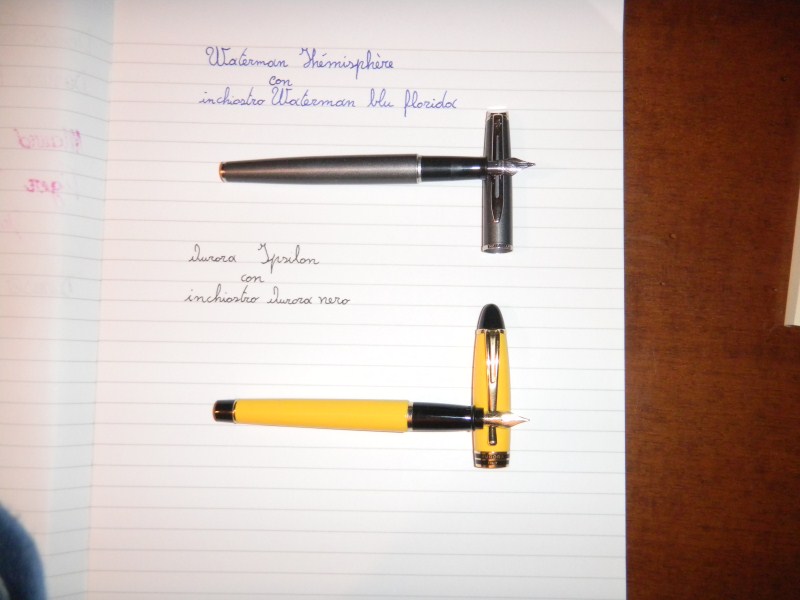 Waterman Hémisphère
con
inchiostro Waterman blu florida
Aurora Ypsilon
con
inchiostro Aurora nero